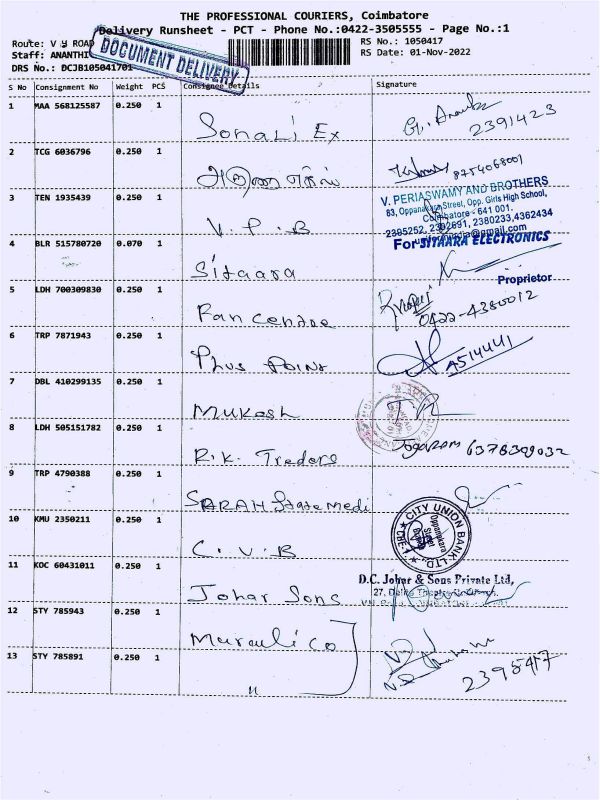 THE PROFESSIONAL COURIERS, Coimbatore
Delivery Runsheet - PCT - Phone No.:0422-3505555 - Page No.:1
Route: V H ROAD
RS No.: 1050417
Staff: ANANTHI
RS Date: 01-Nov-2022
DRS No.: DCJB105041701
DOCUMENT DELIVERY
S No Consignment No Weight PCS Consignee Details Signature
1 MAA 568125587 0.250 1 Sonali Ex
2391423
2 TCG 6036796 0.250 1
8754068001
3 TEN 1935439 0.250 1 V. P. B
V. PERIASWAMY AND BROTHERS
83, Oppanakara Street, Opp. Girls High School,
Coimbatore - 641 001.
2380233,4362434
4 BLR 515780720 0.070 1 Sitaara
For SITAARA ELECTRONICS
Proprietor
5 LDH 700309830 0.250 1 Fan centre
0422-4380012
6 TRP 7871943 0.250 1 Plus Point
7 DBL 410299135 0.250 1 Mukesh
8 LDH 505151782 0.250 1 R.K. Treders
Jogaram 6378399032
9 TRP 4790388 0.250 1 SARAH State Medi
10 KMU 2350211 0.250 1 C. V. B
CITY UNION BANK LTD.,
Oppanakara
Street
CBE-1
11 KOC 60431011 0.250 1 Johar Sons
D.C. Johar & Sons Private Ltd,
12 STY 785943 0.250 1 Murauli Co
13 STY 785891 0.250 1 "